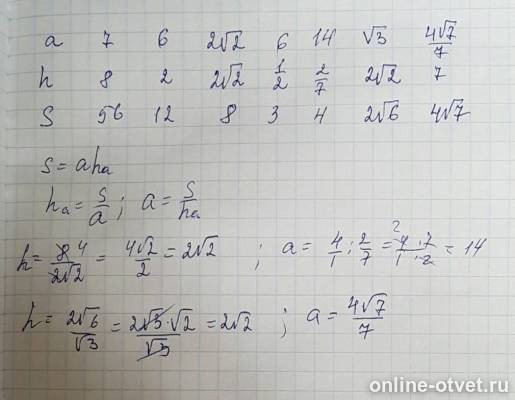 a 7 6 2√2 6 14 √3 4√7/7
h 8 2 2√2 1/2 2/7 2√2 7
S 56 12 8 3 4 2√6 4√7
S = aha
ha = S/a ; a = S/ha
h = 8 4/2√2 = 4√2/2 = 2√2 ; a = 4/1 : 2/7 = 2 4·7/1·2 = 14
h = 2√6/√3 = 2√3·√2/√3 = 2√2 ; a = 4√7/7
online-otvet.ru